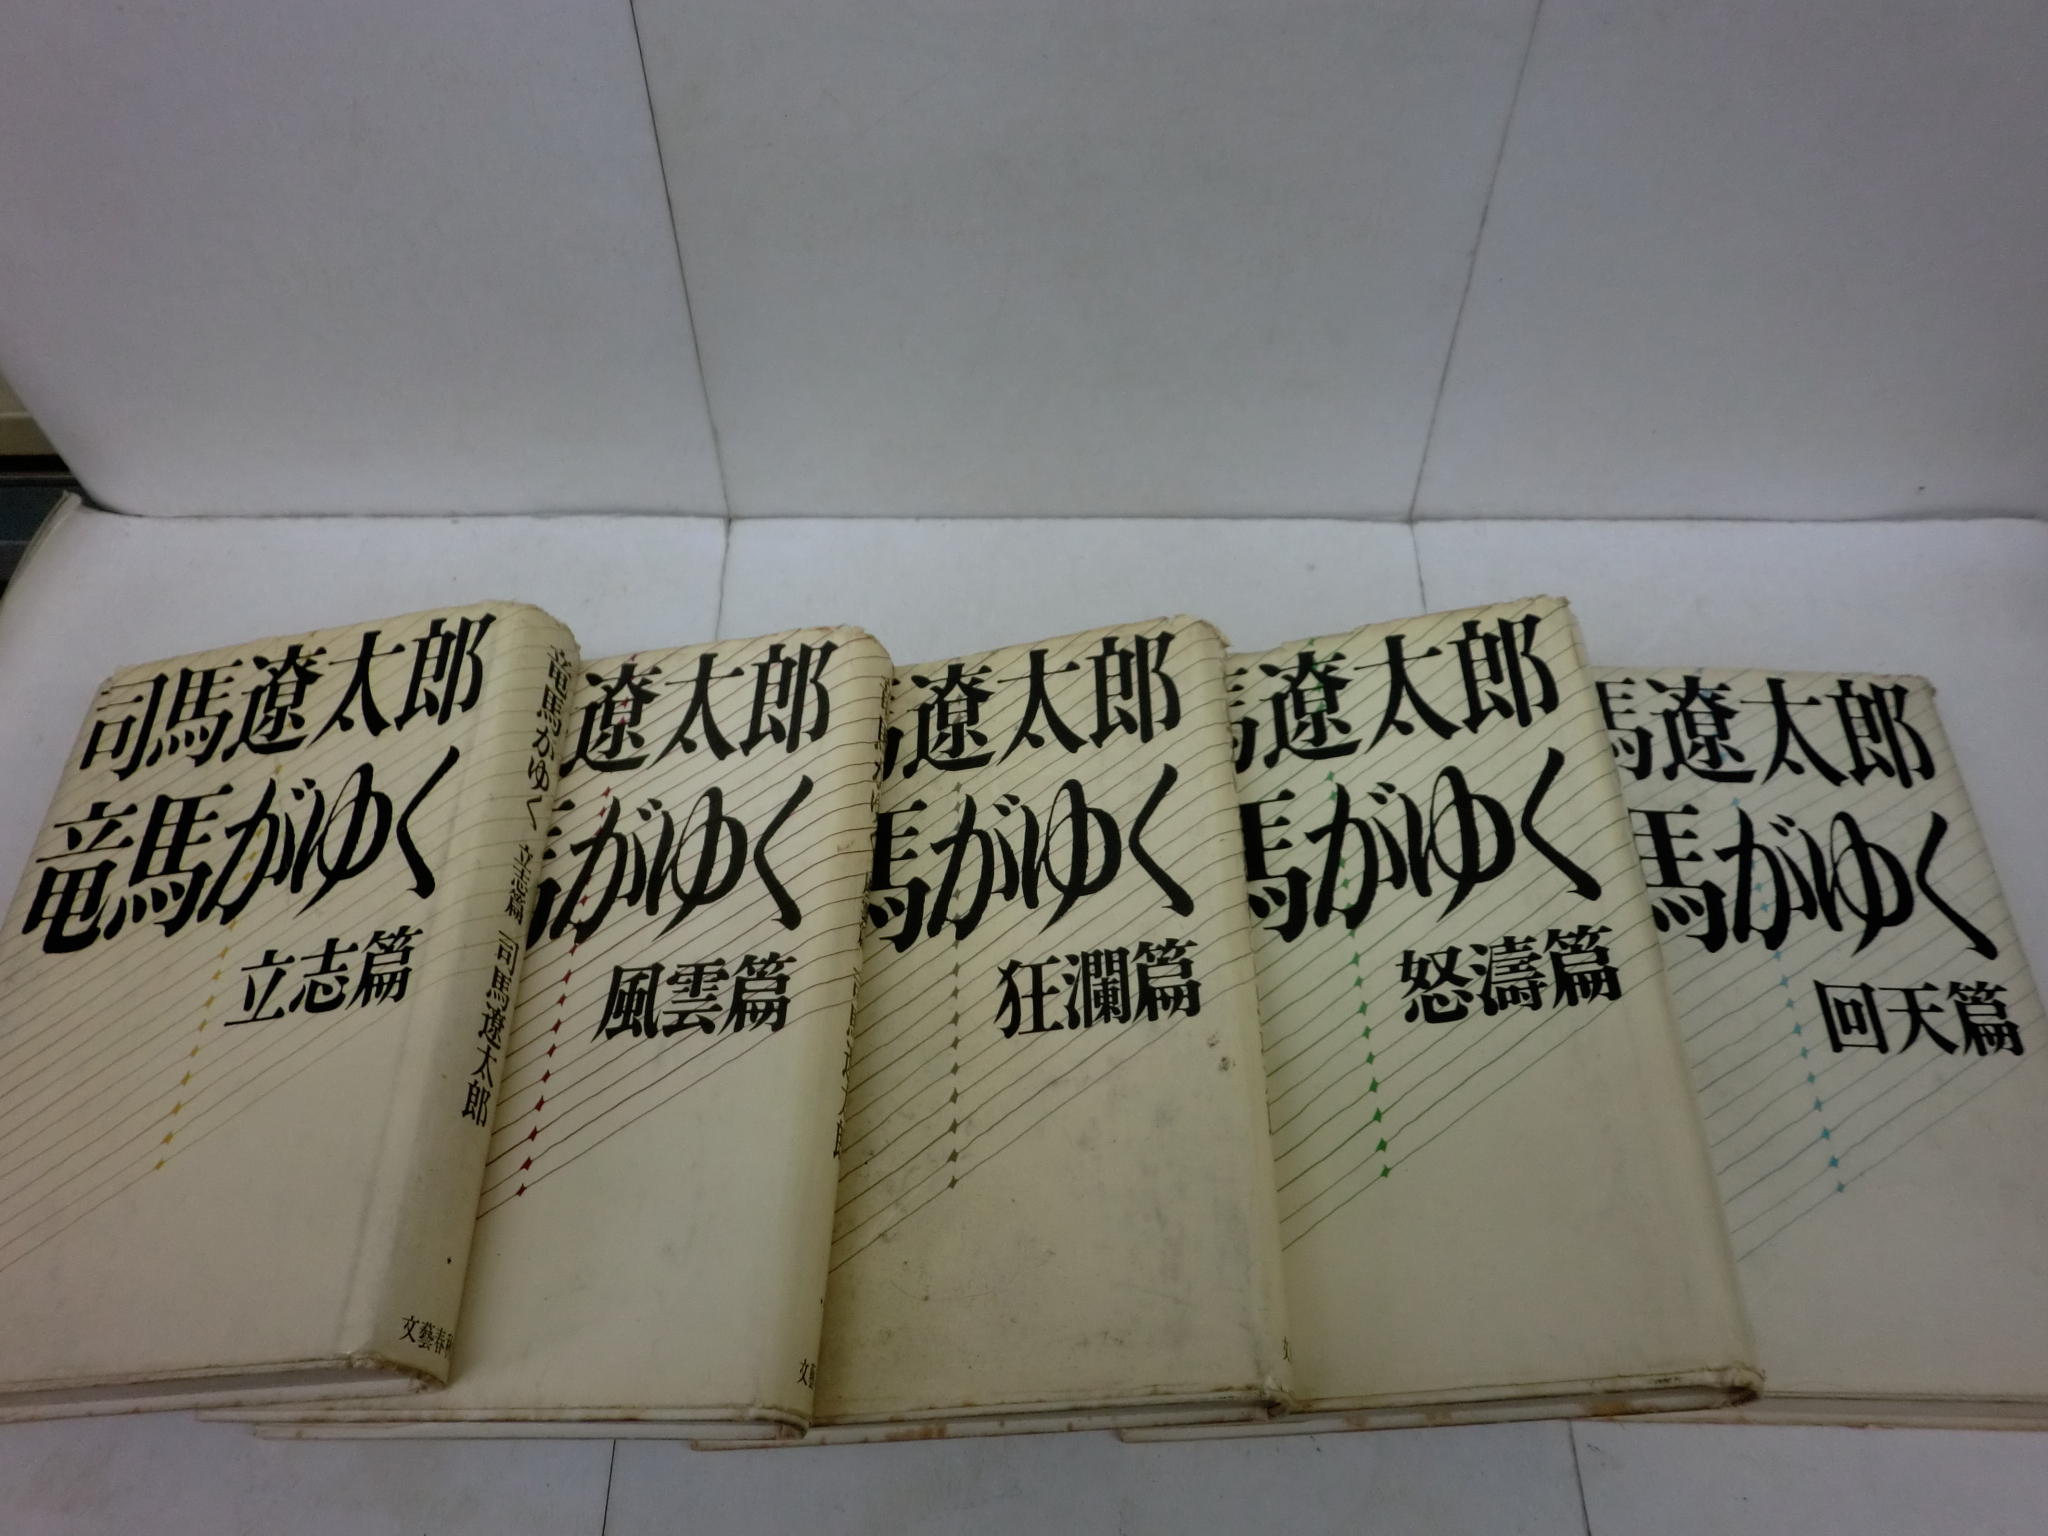 司馬遼太郎
竜馬がゆく
立志篇
竜馬がゆく 立志篇 司馬遼太郎
文藝春
遼太郎
馬がゆく
風雲篇
文藝
馬遼太郎
馬がゆく
狂瀾篇
文
馬遼太郎
馬がゆく
怒濤篇
馬遼太郎
馬がゆく
回天篇